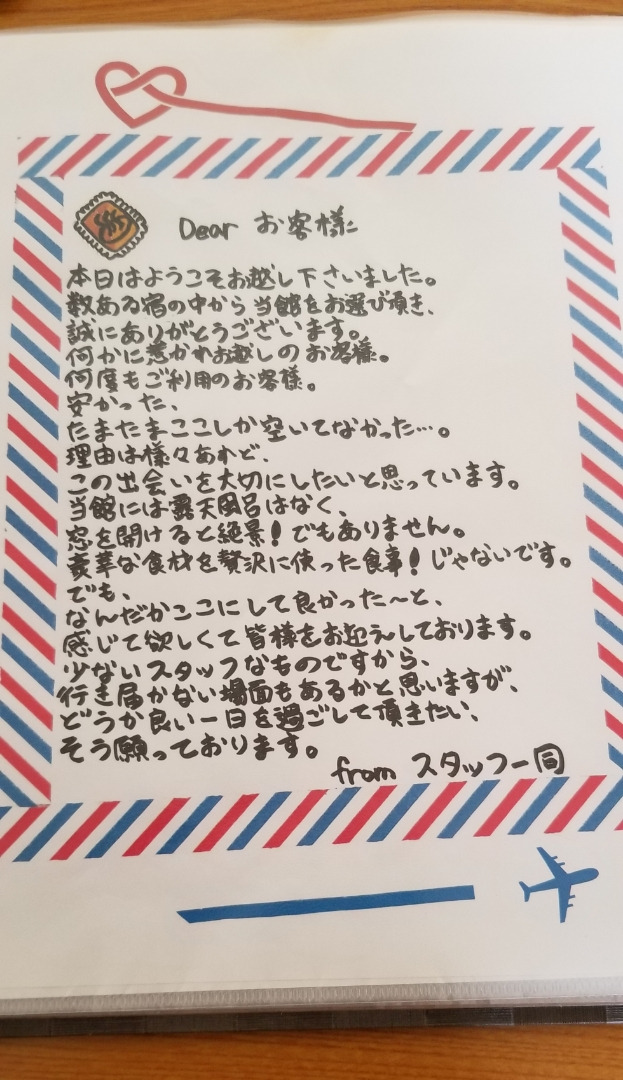 Dear お客様
本日はようこそお越し下さいました。
数ある宿の中から当館をお選び頂き、
誠にありがとうございます。
何かに惹かれお越しのお客様。
何度もご利用のお客様。
安かった、
たまたまここしか空いてなかった…。
理由は様々あれど、
この出会いを大切にしたいと思っています。
当館には露天風呂はなく、
窓を開けると絶景!でもありません。
豪華な食材を贅沢に使った食事!じゃないです。
でも、
なんだかここにして良かった〜と、
感じて欲しくて皆様をお迎えしております。
少ないスタッフなものですから、
行き届かない場面もあるかと思いますが、
どうか良い一日を過ごして頂きたい、
そう願っております。
from スタッフ一同